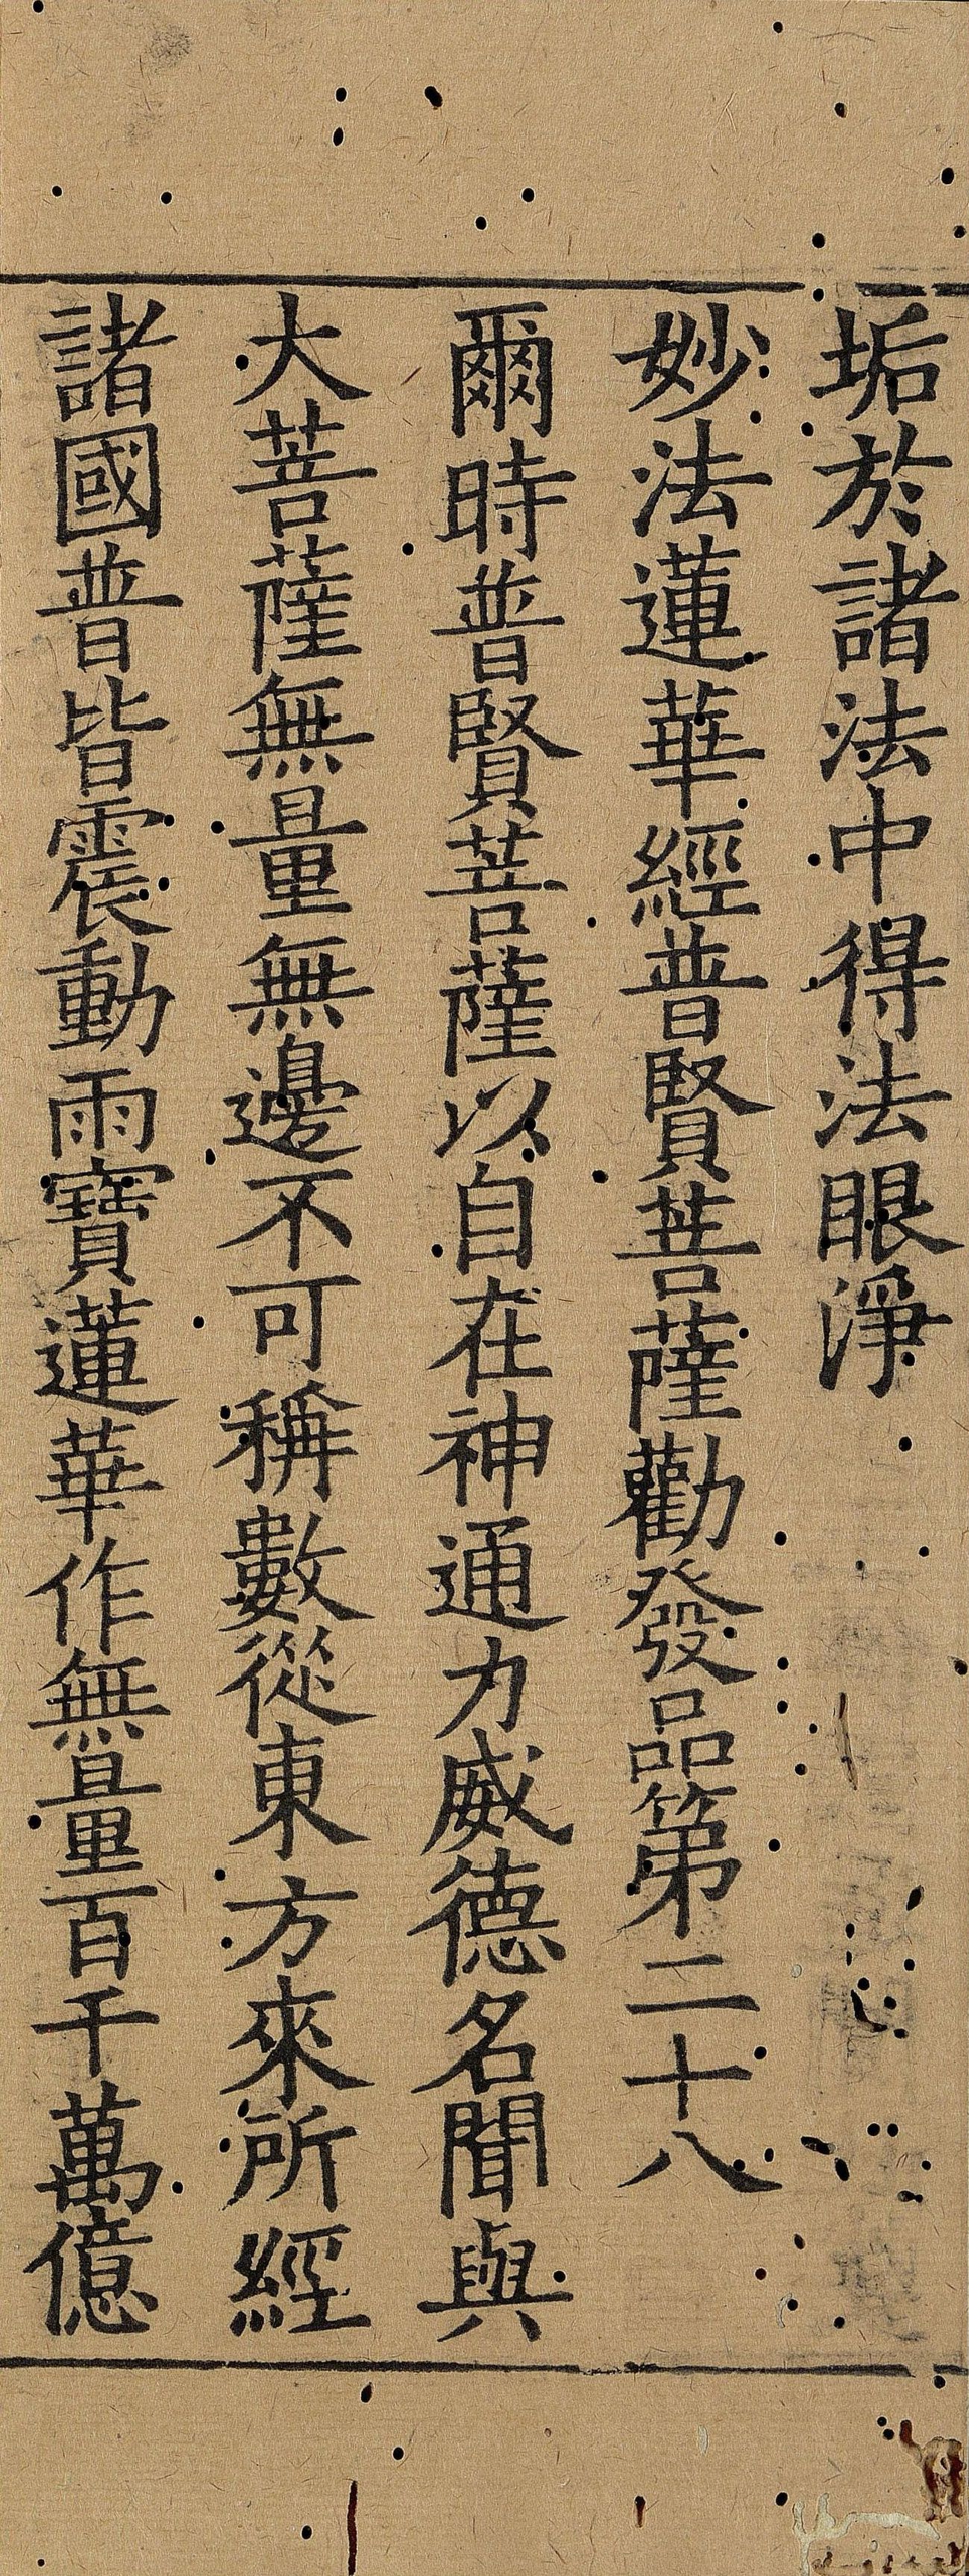 垢於諸法中得法眼淨
妙法蓮華經普賢菩薩勸發品第二十八
爾時普賢菩薩以自在神通力威德名聞與
大菩薩無量無邊不可稱數從東方來所經
諸國普皆震動雨寶蓮華作無量百千萬億